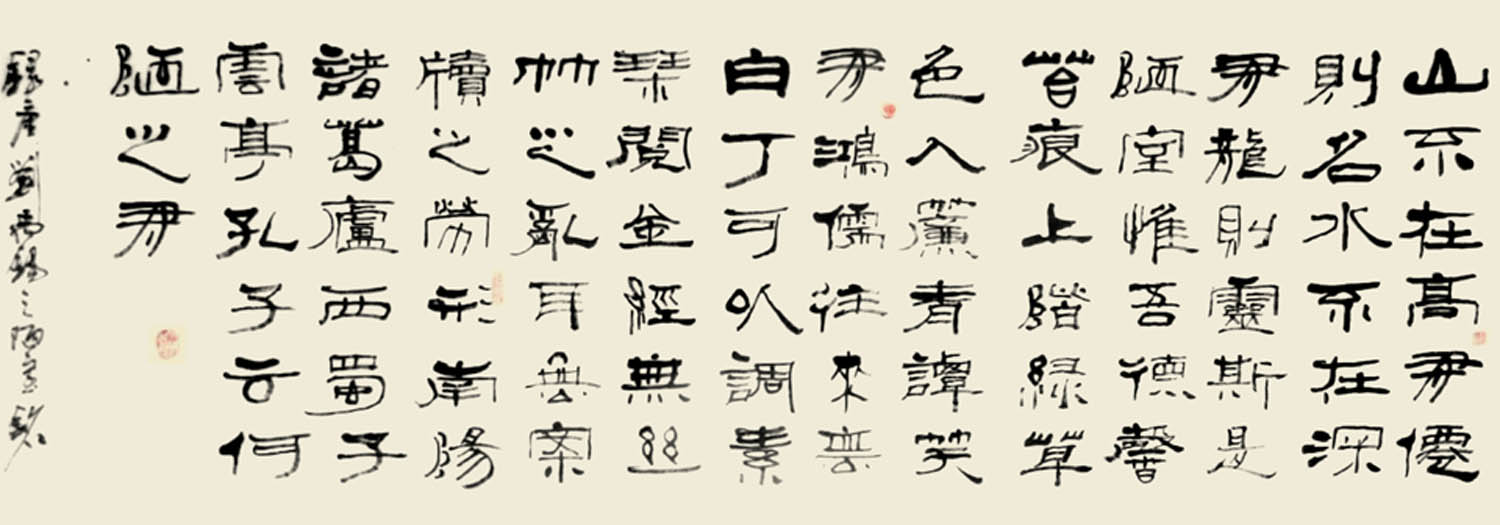 山不在高有僊
則名水不在深
有龍則靈斯是
陋室惟吾德馨
苔痕上階緑草
色入簾青譚笑
有鴻儒往來無
白丁可以調素
琴閱金經無絲
竹之亂耳無案
牘之勞形南陽
諸葛廬西蜀子
雲亭孔子云何
陋之有
録唐劉禹錫之陋室銘